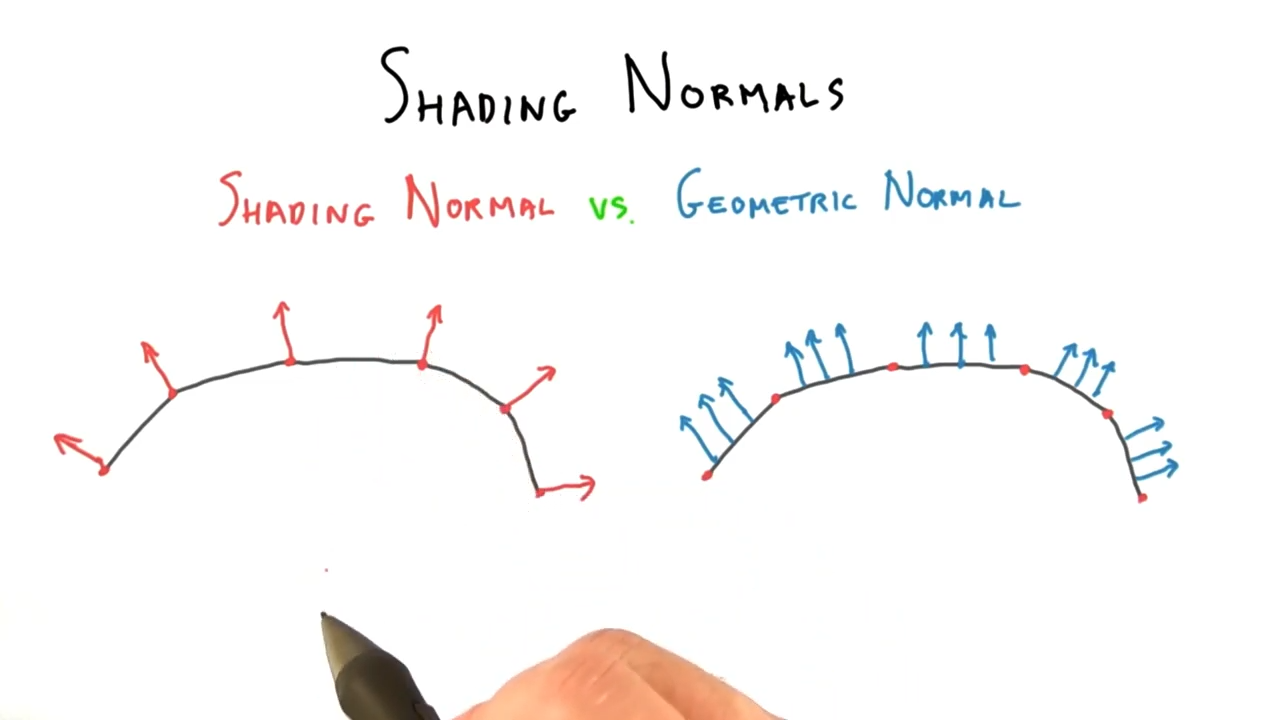 SHADING NORMALS
SHADING NORMAL VS. GEOMETRIC NORMAL